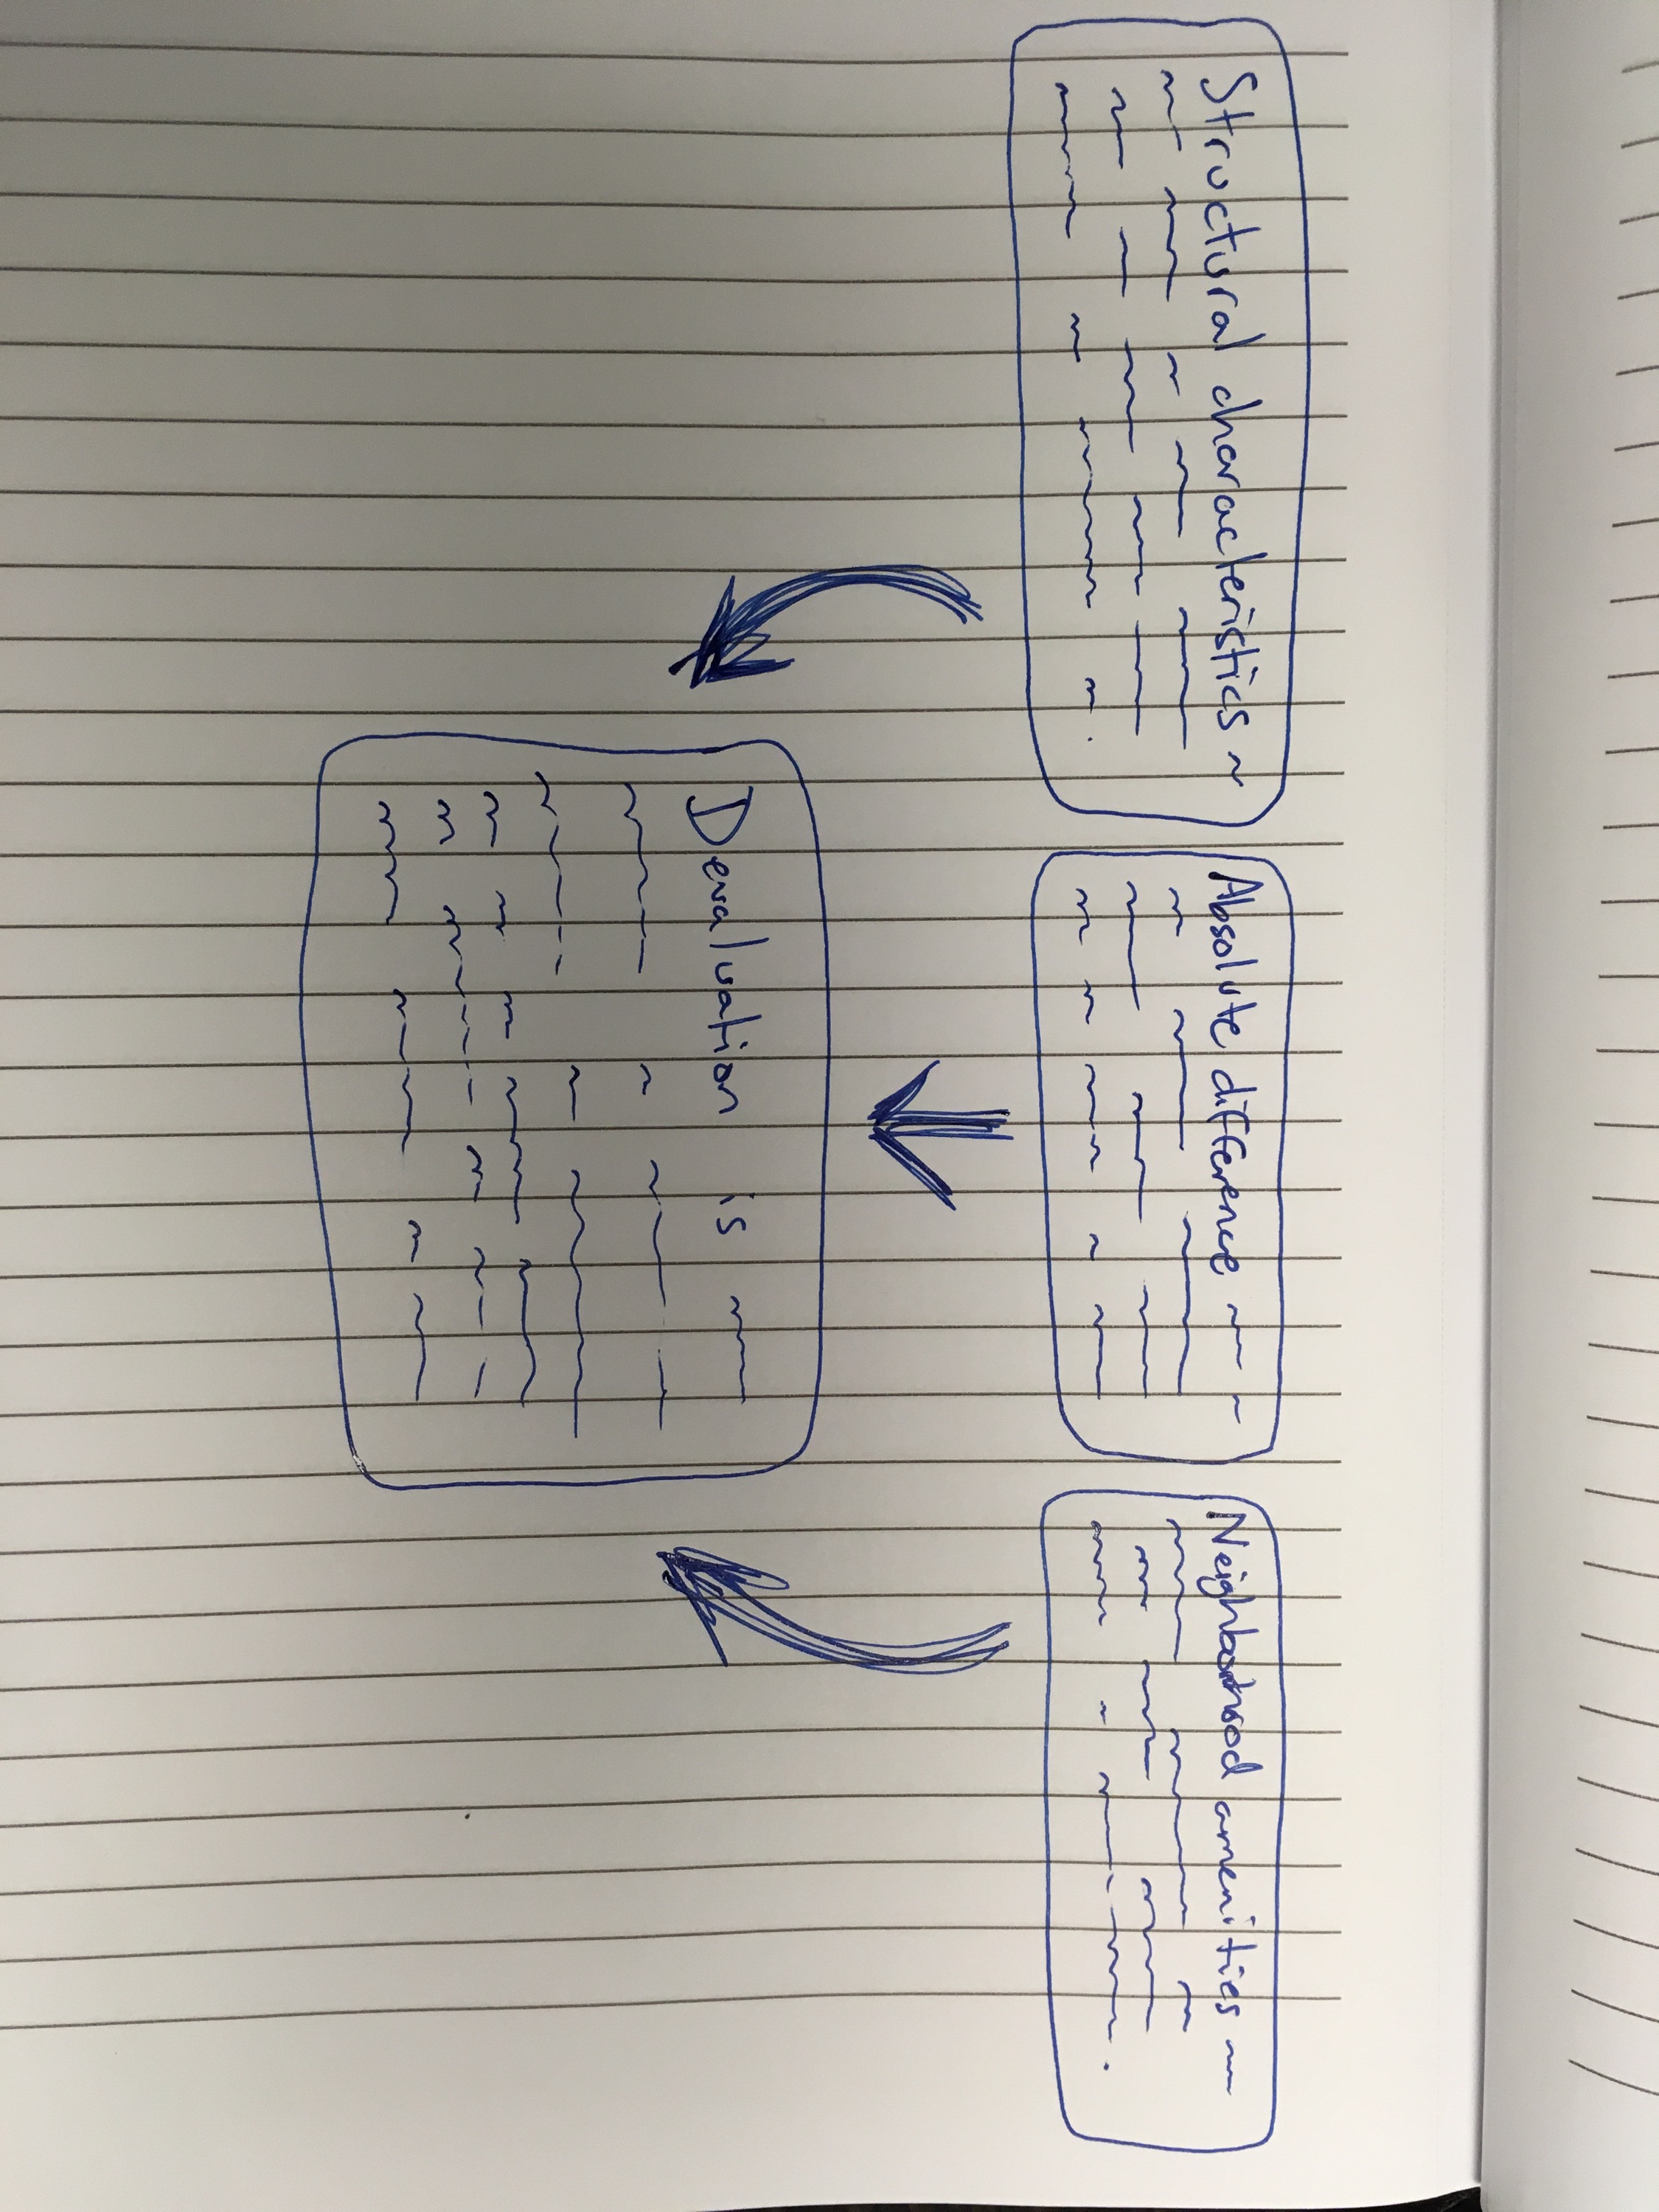 Structural characteristics ~
Absolute difference ~ ~
Neighborhood amenities ~
Devaluation is